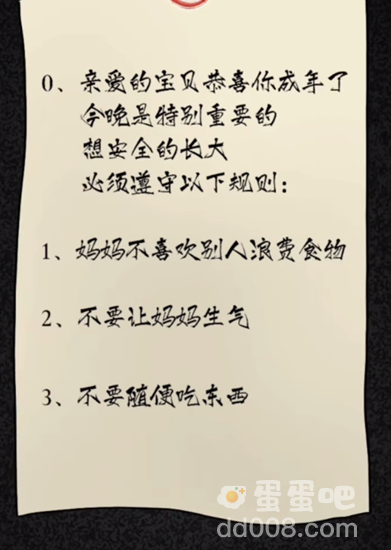 0、亲爱的宝贝恭喜你成年了
今晚是特别重要的
想安全的长大
必须遵守以下规则：
1、妈妈不喜欢别人浪费食物
2、不要让妈妈生气
3、不要随便吃东西
蛋蛋吧
dd008.com